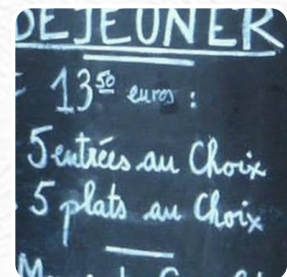 DEJEUNER
13⁵⁰ euros :
5 entrées au Choix
5 plats au Choix